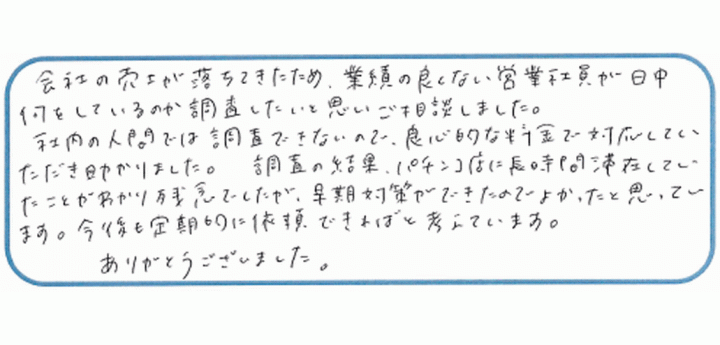 会社の売上が落ちてきたため、業績の良くない営業社員が日中
何をしているのか調査したいと思いご相談しました。
社内の人間では調査できないので、良心的な料金で対応してい
ただき助かりました。 調査の結果、パチンコ店に長時間滞在してい
たことがわかり残念でしたが、早期対策ができたのでよかったと思ってい
ます。今後も定期的に依頼できればと考えています。
ありがとうございました。